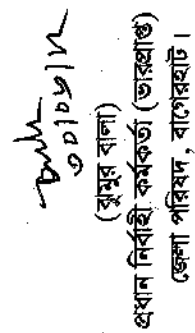 (ঝুমুর বালা)
প্রধান নির্বাহী কর্মকর্তা (ভারপ্রাপ্ত)
জেলা পরিষদ, বাগেরহাট।